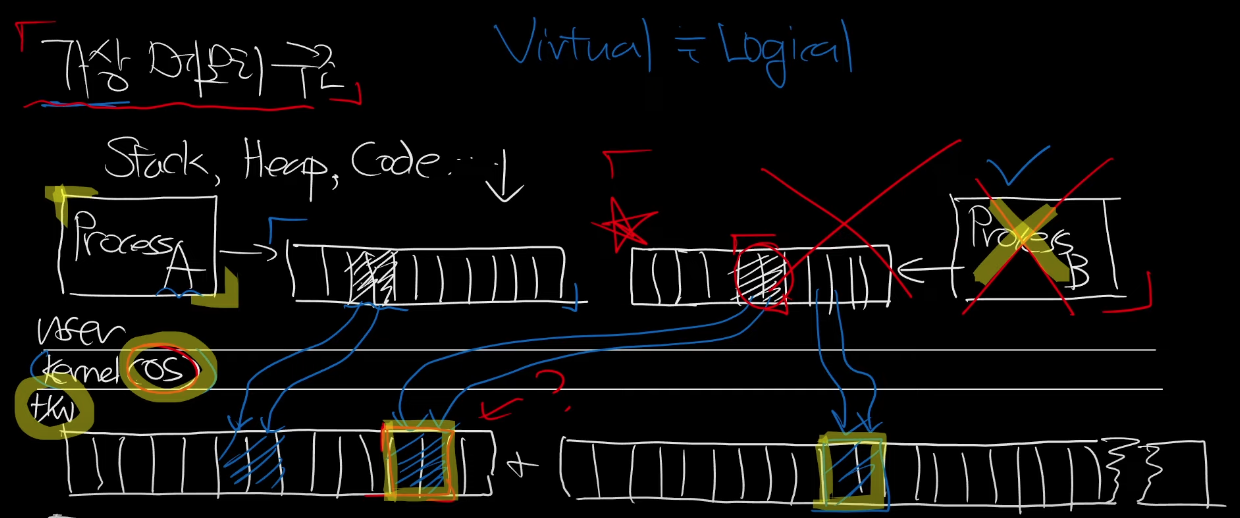 가상 메모리 구조
Virtual = Logical
Stack, Heap, Code...
Process A
Process B
user
kernel OS
HW
?
+